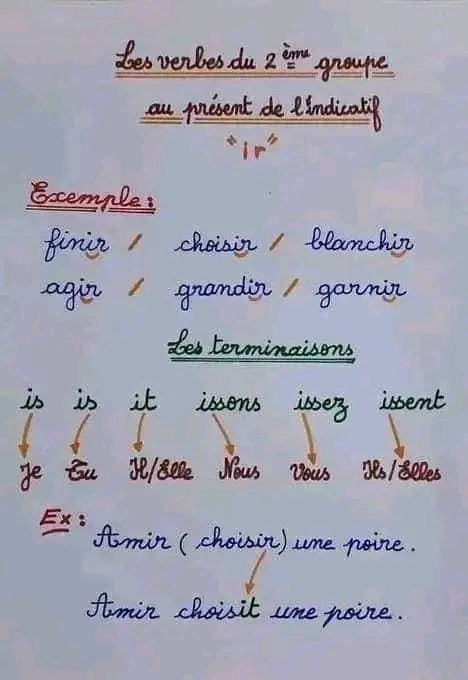 Les verbes du 2 ème groupe
au présent de l'indicatif
"ir"
Exemple :
finir / choisir / blanchir
agir / grandir / garnir
Les terminaisons
is is it issons issez issent
Je Tu Il/Elle Nous Vous Ils/Elles
Ex :
Amir ( choisir ) une poire .
Amir choisit une poire .